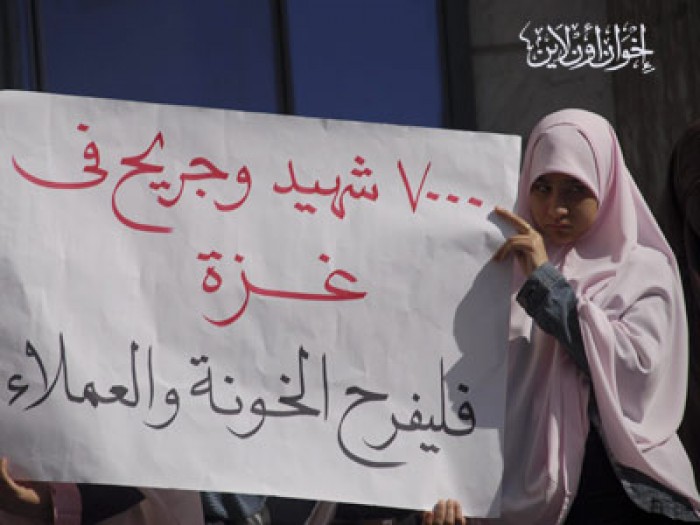 إخوان أون لاين
٧٠٠٠ شهيد وجريح فى
غزة
فليفرح الخونة والعملاء